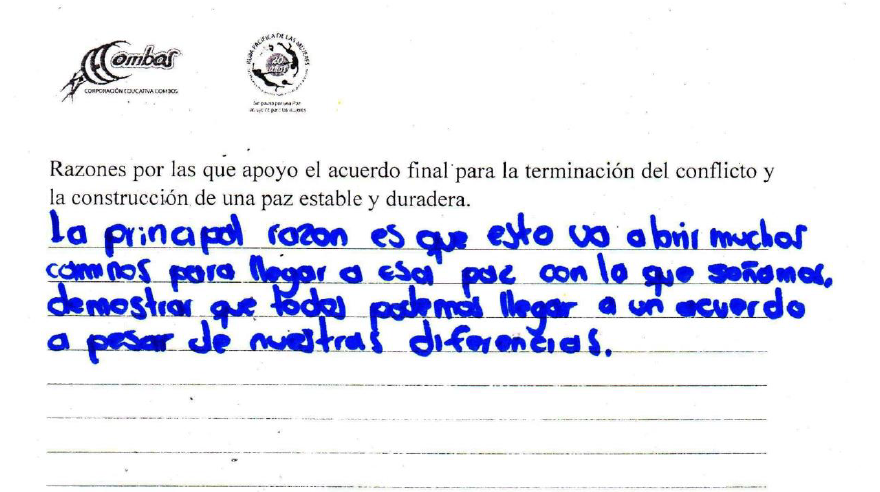 ombos
CORPORACIÓN EDUCATIVA COMBOS
RUTA PACÍFICA DE LAS MUJERES
20
AÑOS
Razones por las que apoyo el acuerdo final para la terminación del conflicto y
la construcción de una paz estable y duradera.
La principal razon es que esto va abrir muchos
caminos para llegar a esa paz con la que soñamos,
demostrar que todos podemos llegar a un acuerdo
a pesar de nuestras diferencias.